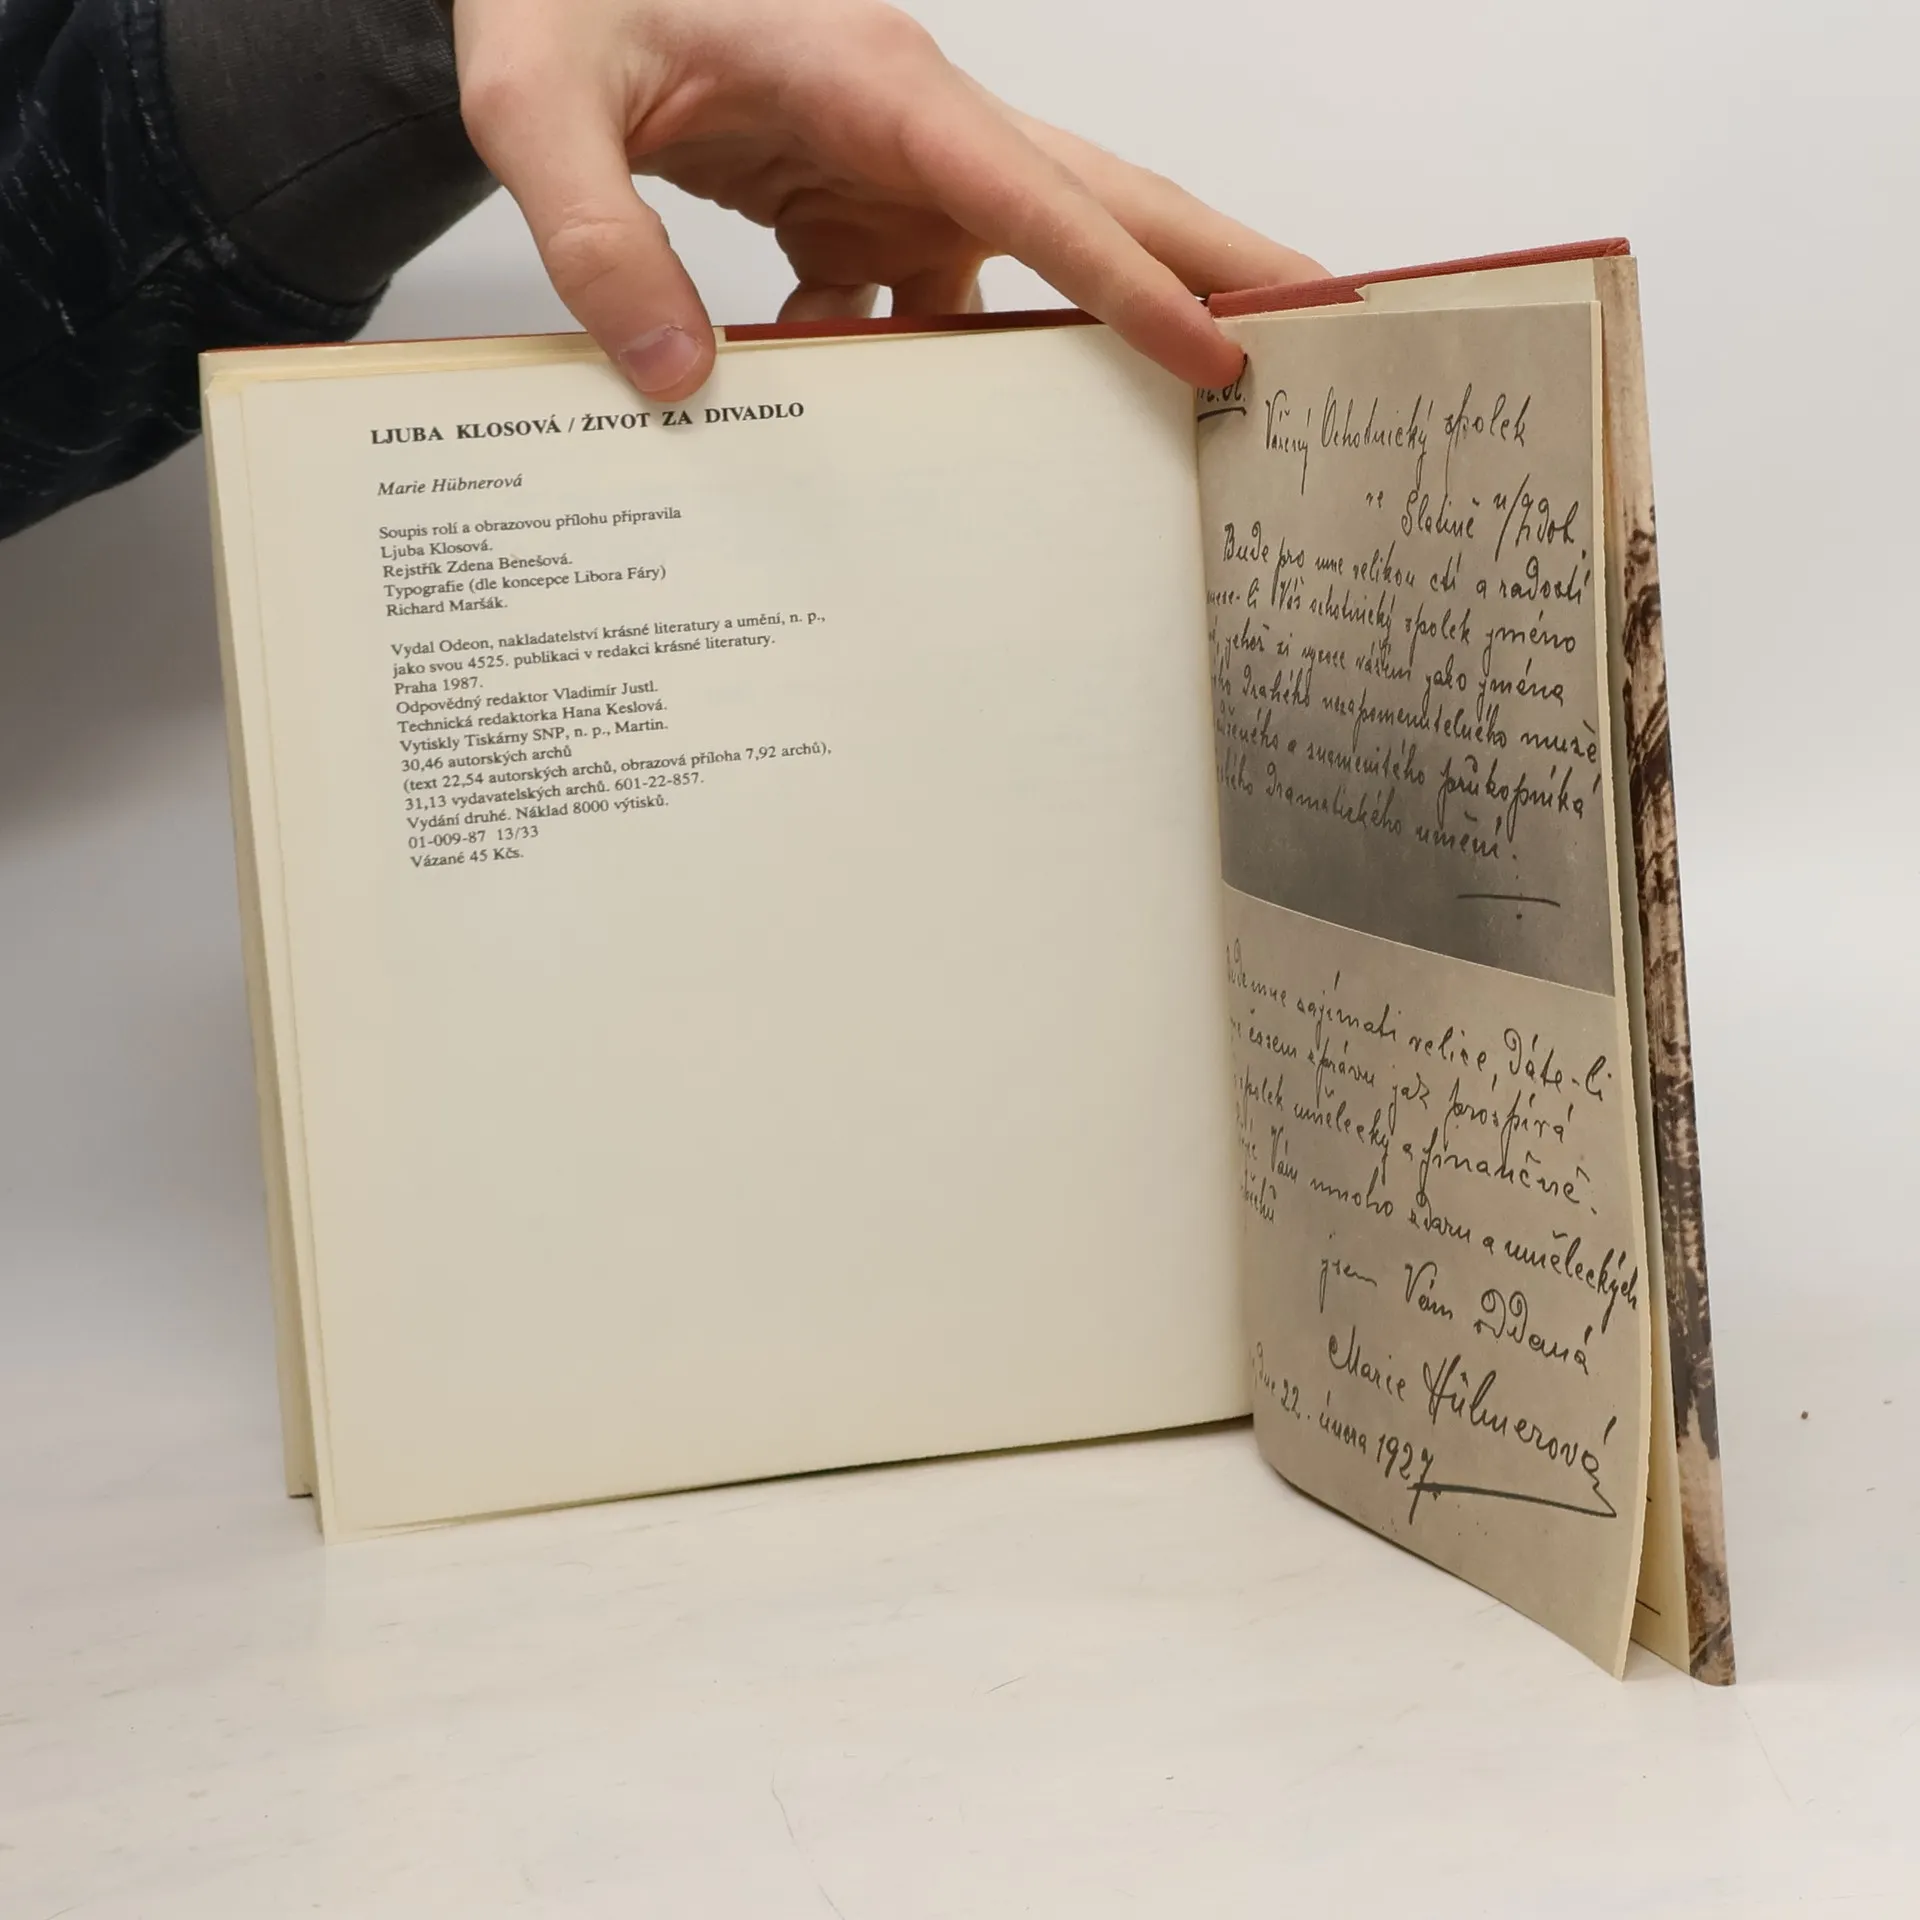 LJUBA KLOSOVÁ / ŽIVOT ZA DIVADLO
Marie Hübnerová
Soupis rolí a obrazovou přílohu připravila
Ljuba Klosová.
Rejstřík Zdena Benešová.
Typografie (dle koncepce Libora Fáry)
Richard Maršák.
Vydal Odeon, nakladatelství krásné literatury a umění, n. p.,
jako svou 4525. publikaci v redakci krásné literatury.
Praha 1987.
Odpovědný redaktor Vladimír Justl.
Technická redaktorka Hana Keslová.
Vytiskly Tiskárny SNP, n. p., Martin.
30,46 autorských archů
(text 22,54 autorských archů, obrazová příloha 7,92 archů),
31,13 vydavatelských archů. 601-22-857.
Vydání druhé. Náklad 8000 výtisků.
01-009-87 13/33
Vázané 45 Kčs.
Vážený Ochotnický spolek
ve Slatině n/Zdob.
Bude pro mne velikou ctí a radostí
Váš ochotnický spolek jméno
jehož si vysoce vážím jako jména
drahého nezapomenutelného muže
a znamenitého průkopníka
dramatického umění.
mne zajímati velice, dáte-li
časem zprávu jak prospívá
spolek umělecky a finančně.
Vám mnoho zdaru a uměleckých
jsem Vám oddaná
Marie Hübnerová
dne 22. února 1927.